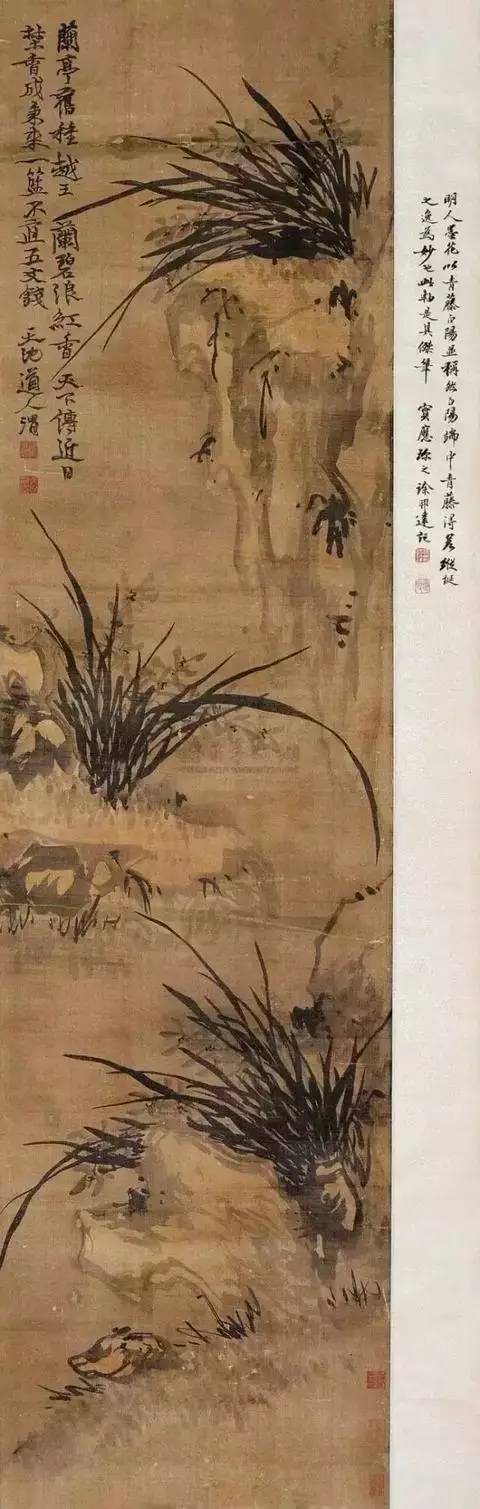 明人墨花以青藤白陽並稱然白陽端中青藤得縱
之逸為妙也此軸是其傑筆 寶應徐邦達記
蘭亭舊種越王蘭碧浪紅香天下傳近日
埜香成秉束一籃不直五文錢 天池道人渭